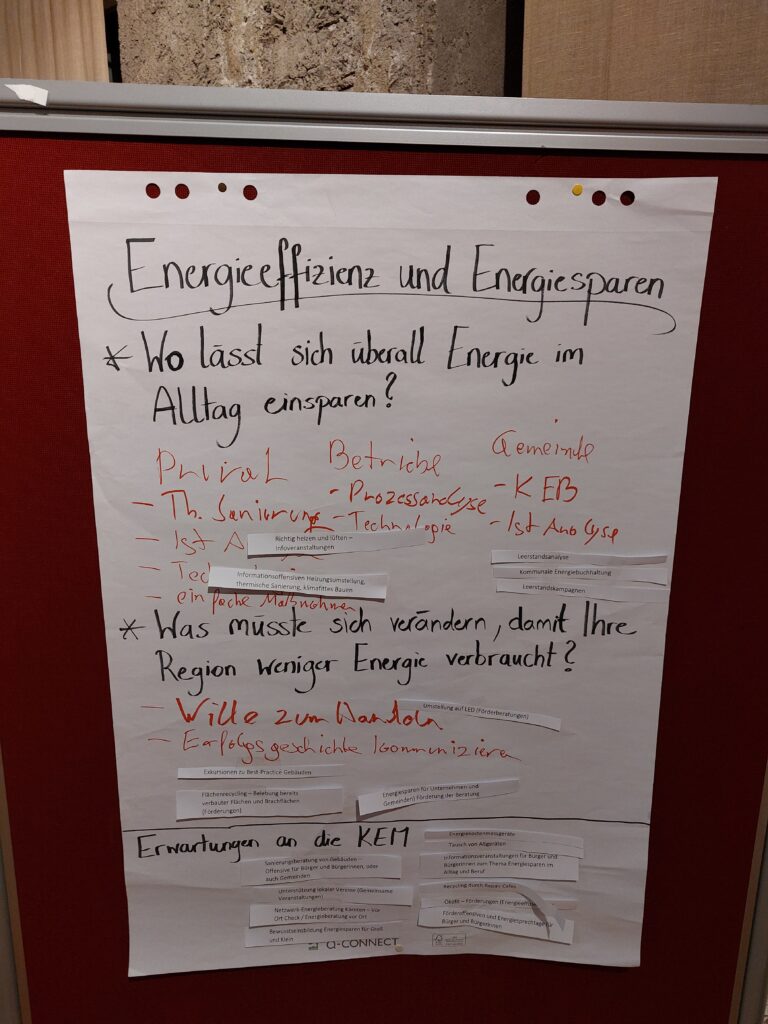 Energieeffizienz und Energiesparen
* Wo lässt sich überall Energie im
Alltag einsparen?
Privat
- Th. Sanierung
- Ist A
- Tec
- einfache Maßnahmen
Betriebe
- Prozessanalyse
- Technologie
Gemeinde
- KEB
- Ist Analyse
Richtig heizen und lüften –
Infoveranstaltungen
Informationsoffensiven Heizungsumstellung,
thermische Sanierung, klimafittes Bauen
Leerstandsanalyse
Kommunale Energiebuchhaltung
Leerstandskampagnen
* Was müsste sich verändern, damit Ihre
Region weniger Energie verbraucht?
- Wille zum Handeln
- Erfolgsgeschichte kommunizieren
Umstellung auf LED (Förderberatungen)
Exkursionen zu Best-Practice Gebäuden
Flächenrecycling – Belebung bereits
verbauter Flächen und Brachflächen
(Förderungen)
Energiesparen für Unternehmen und
Gemeinden) Förderung der Beratung
Erwartungen an die KEM
Sanierungsberatung von Gebäuden –
Offensive für Bürger und Bürgerinnen, oder
auch Gemeinden
Unterstützung lokaler Vereine (Gemeinsame
Veranstaltungen)
Netzwerk-Energieberatung Kärnten – Vor
Ort-Check / Energieberatung vor Ort
Bewusstseinsbildung Energiesparen für Groß
und Klein
Energiekostenmessgeräte
Tausch von Altgeräten
Informationsveranstaltungen für Bürger und
Bürgerinnen zum Thema Energiesparen im
Alltag und Beruf
Recycling durch Repair Cafes
Ökofit – Förderungen (Energieeffizie
Förderoffensiven und Energiesprechtage für
Bürger und Bürgerinnen
a-CONNECT